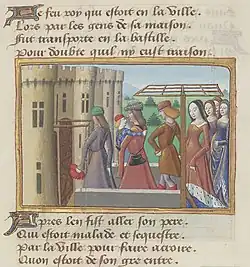 Le feu roy qui estoit en la Ville.
Lors par les gens de sa maison.
Fut transporte en la bastille.
Pour doubte quil ny eust traison.
Apres len fist aller son pere.
Qui estoit malade et sequestre.
Par la Ville pour faire acroire.
Quon estoit de son gre entre.